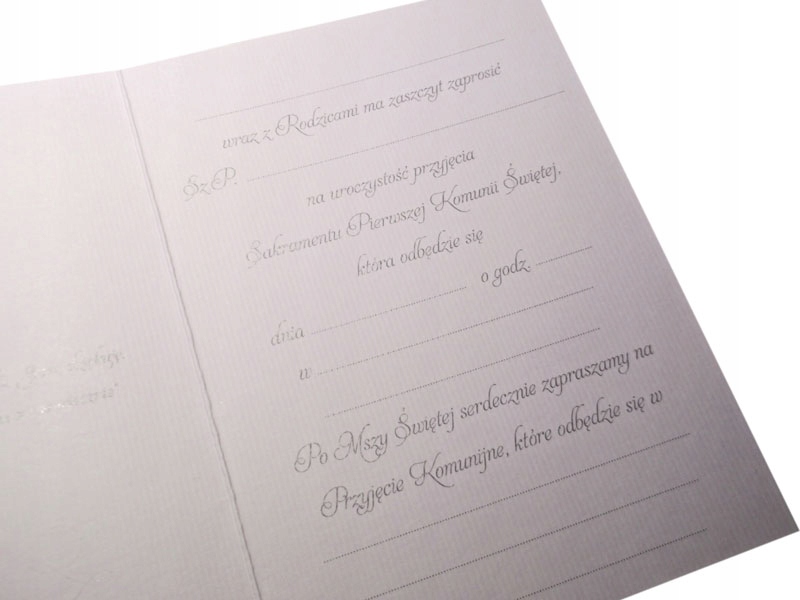 wraz z Rodzicami ma zaszczyt zaprosić
Sz.P.
na uroczystość przyjęcia
Sakramentu Pierwszej Komunii Świętej,
która odbędzie się
dnia o godz.
w
Po Mszy Świętej serdecznie zapraszamy na
Przyjęcie Komunijne, które odbędzie się w